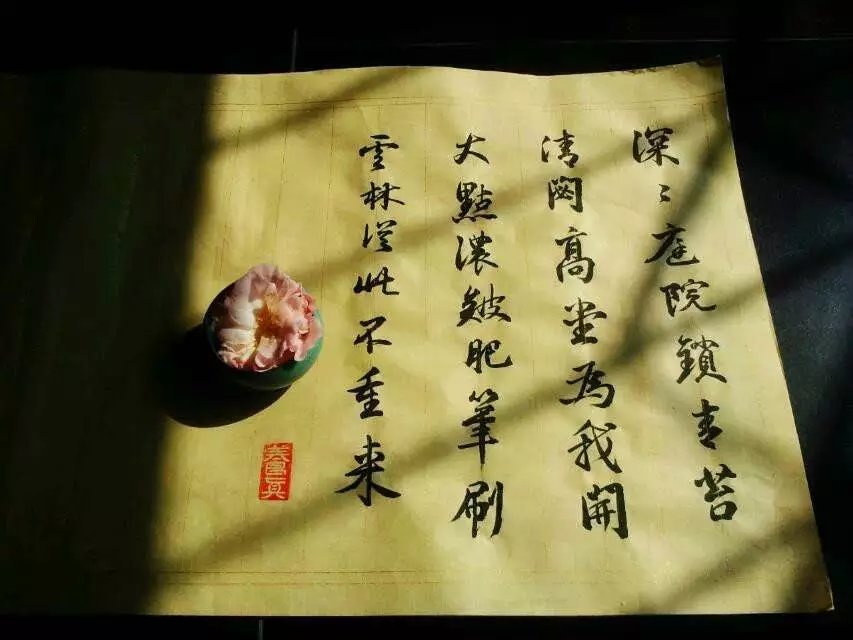 深〻庭院鎖青苔
清閟高堂為我開
大點濃皴肥筆刷
雲林從此不重来